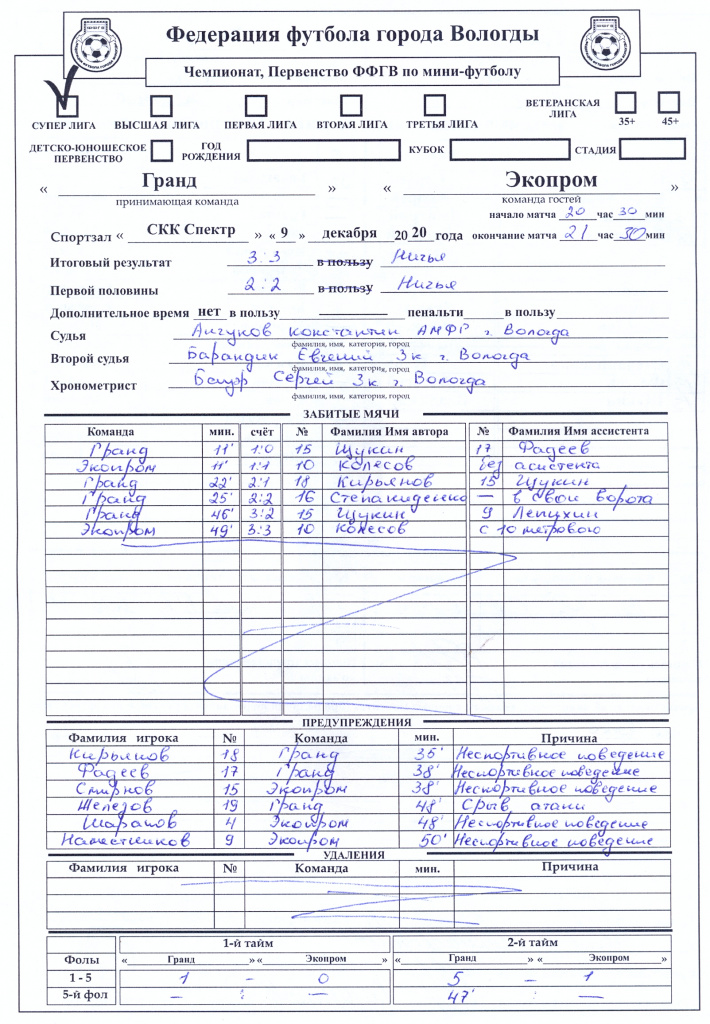 Федерация футбола города Вологды
Чемпионат, Первенство ФФГВ по мини-футболу
СУПЕР ЛИГА ВЫСШАЯ ЛИГА ПЕРВАЯ ЛИГА ВТОРАЯ ЛИГА ТРЕТЬЯ ЛИГА ВЕТЕРАНСКАЯ ЛИГА 35+ 45+
ДЕТСКО-ЮНОШЕСКОЕ ПЕРВЕНСТВО ГОД РОЖДЕНИЯ КУБОК СТАДИЯ
« Гранд » « Экопром »
принимающая команда команда гостей
начало матча 20 час 30 мин
Спортзал « СКК Спектр » « 9 » декабря 20 20 года окончание матча 21 час 30 мин
Итоговый результат 3:3 в пользу Ничья
Первой половины 2:2 в пользу Ничья
Дополнительное время нет в пользу пенальти в пользу
Судья Ангуков Константин АМФР г. Вологда
фамилия, имя, категория, город
Второй судья Барандин Евгений 3к г. Вологда
фамилия, имя, категория, город
Хронометрист Сергей 3к г. Вологда
фамилия, имя, категория, город
ЗАБИТЫЕ МЯЧИ
Команда мин. счёт № Фамилия Имя автора № Фамилия Имя ассистента
Гранд 11' 1:0 15 Щукин 17 Фадеев
Экопром 11' 1:1 10 Колесов без асистента
Гранд 22' 2:1 18 Кирьянов 15 Щукин
Гранд 25' 2:2 16 Степаниденко — в свои ворота
Гранд 46' 3:2 15 Щукин 9 Лепухин
Экопром 49' 3:3 10 Колесов с 10 метрового
ПРЕДУПРЕЖДЕНИЯ
Фамилия игрока № Команда мин. Причина
Кирьянов 18 Гранд 35' Неспортивное поведение
Фадеев 17 Гранд 38' Неспортивное поведение
Смирнов 15 Экопром 38' Неспортивное поведение
Шелепов 19 Гранд 48' Срыв атаки
Шарапов 4 Экопром 48' Неспортивное поведение
Наместников 9 Экопром 50' Неспортивное поведение
УДАЛЕНИЯ
Фамилия игрока № Команда мин. Причина
1-й тайм 2-й тайм
Фолы « Гранд » « Экопром » « Гранд » « Экопром »
1 - 5 1 - 0 5 - 1
5-й фол — : — 47' : —